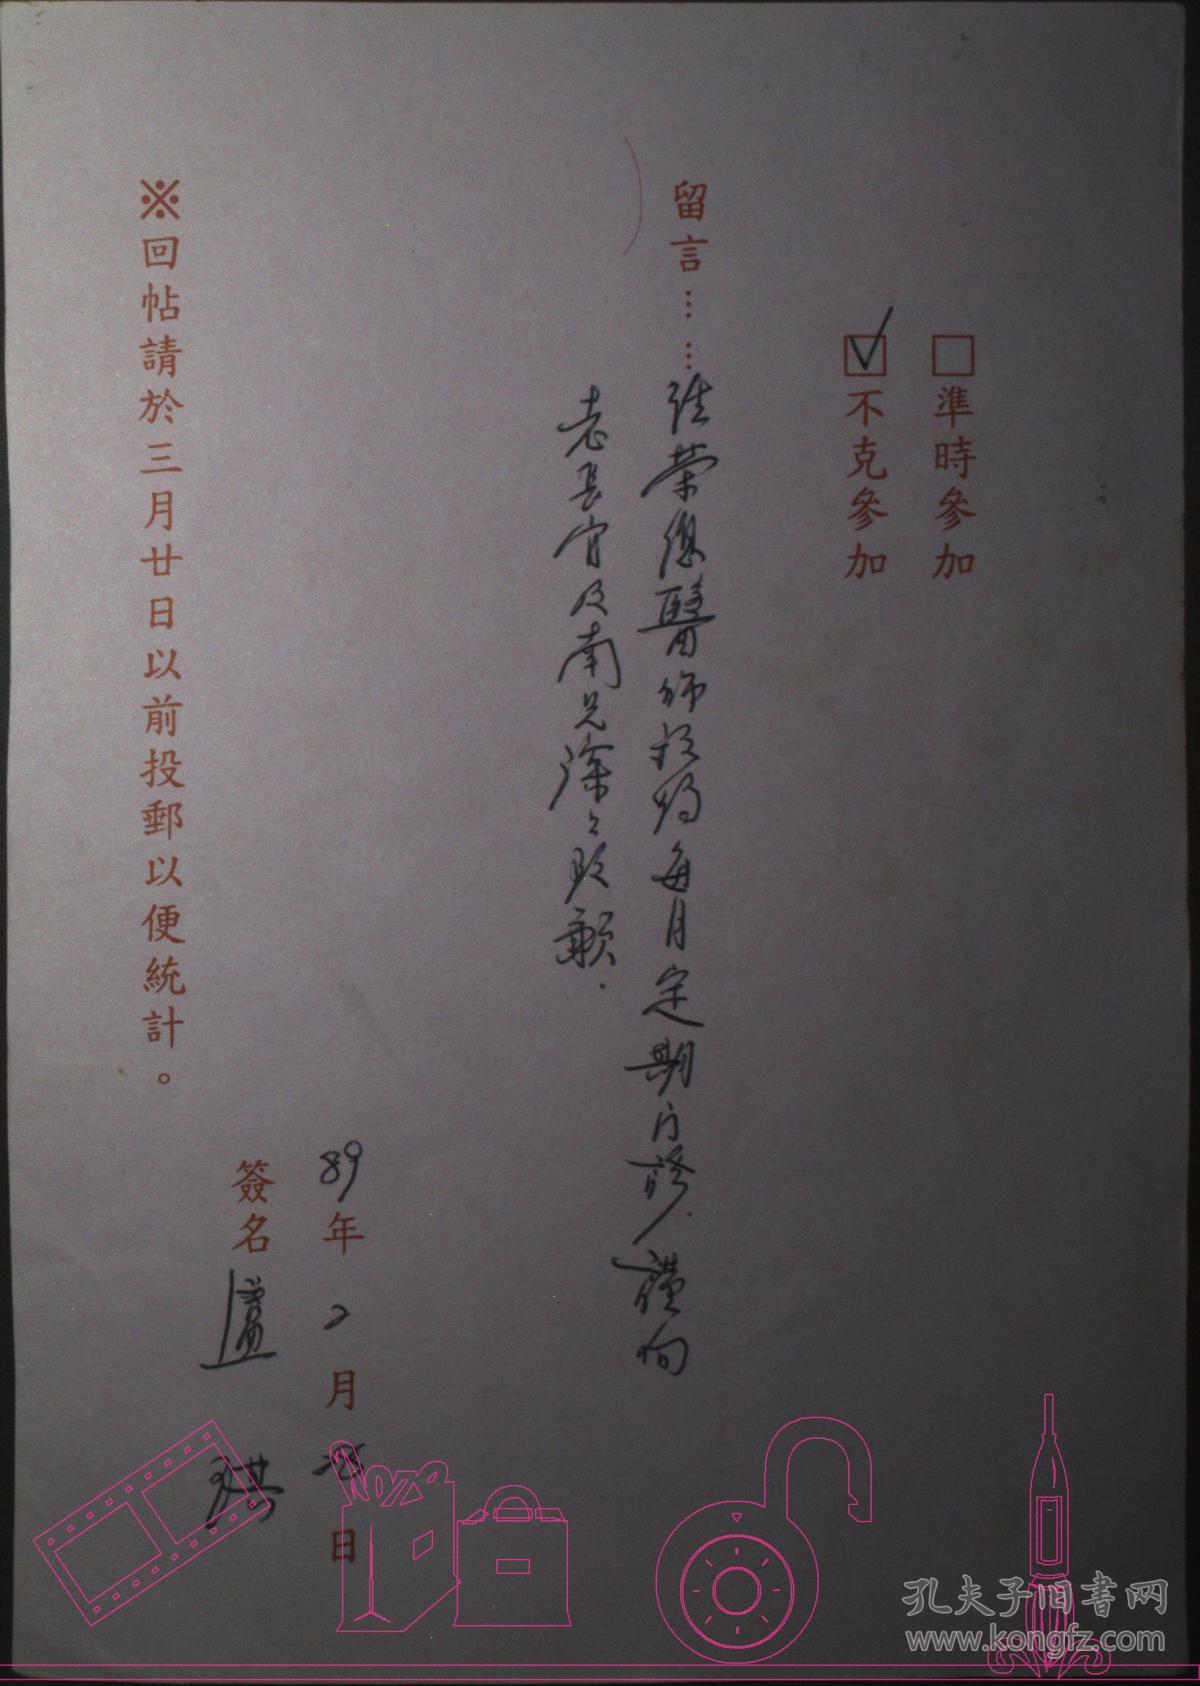 □準時參加
☑不克參加
留言……往榮總醫師預約每月定期門診.謹向
老長官及南兄深々致歉.
89年2月 日
簽名 盧 琪
※回帖請於三月廿日以前投郵以便統計。
孔夫子旧书网
www.kongfz.com